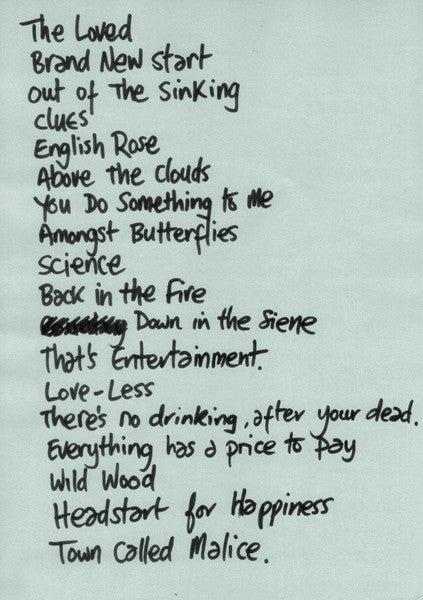 The Loved
Brand New start
out of The Sinking
clues
English Rose
Above the clouds
You Do Something to Me
Amongst Butterflies
Science
Back in the Fire
Down in the Siene
That's Entertainment.
Love-Less
There's no drinking, after your dead.
Everything has a price to pay
Wild Wood
Headstart for Happiness
Town Called Malice.